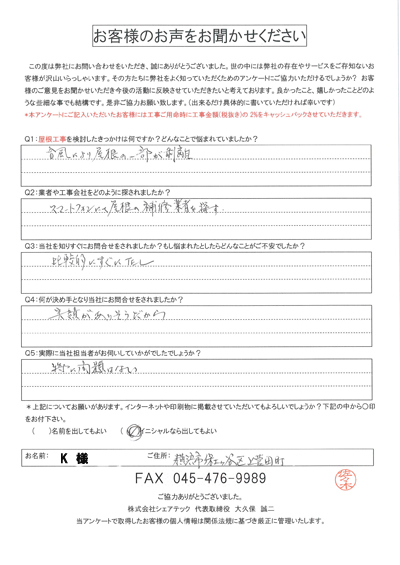 お客様のお声をお聞かせください
この度は弊社にお問い合わせをいただき、誠にありがとうございました。世の中には弊社の存在やサービスをご存知ないお
客様が沢山いらっしゃいます。その方たちに弊社をよく知っていただくためのアンケートにご協力いただけるでしょうか？ お客
様のご意見をお聞かせいただき今後の活動に反映させていただきたいと考えております。良かったこと、嬉しかったことどのよ
うな些細な事でも結構です。是非ご協力お願い致します。（出来るだけ具体的に書いていただければ幸いです）
*本アンケートにご記入いただいたお客様には工事ご用命時に工事金額(税抜き)の 2%をキャッシュバックさせていただきます。
Q1：屋根工事を検討したきっかけは何ですか？どんなことで悩まれていましたか？
台風により屋根の一部が剥離
Q2：業者や工事会社をどのように探されましたか？
スマートフォンにて屋根の補修業者を探す
Q3：当社を知りすぐにお問合せをされましたか？もし悩まれたとしたらどんなことがご不安でしたか？
比較的にすぐにTEL
Q4：何が決め手となり当社にお問合せをされましたか？
実績がありそうだから
Q5：実際に当社担当者がお伺いしていかがでしたでしょうか？
特に問題はない
＊上記についてお願いがあります。インターネットや印刷物に掲載させていただいてもよろしいでしょうか？下記の中から○印
をお付下さい。
（ ）名前を出してもよい （○）イニシャルなら出してもよい
お名前： K 様 ご住所： 横浜市保土ヶ谷区上菅田町
FAX 045-476-9989
ご協力ありがとうございました。
株式会社シェアテック 代表取締役 大久保 誠二
当アンケートで取得したお客様の個人情報は関係法規に基づき厳正に管理いたします。